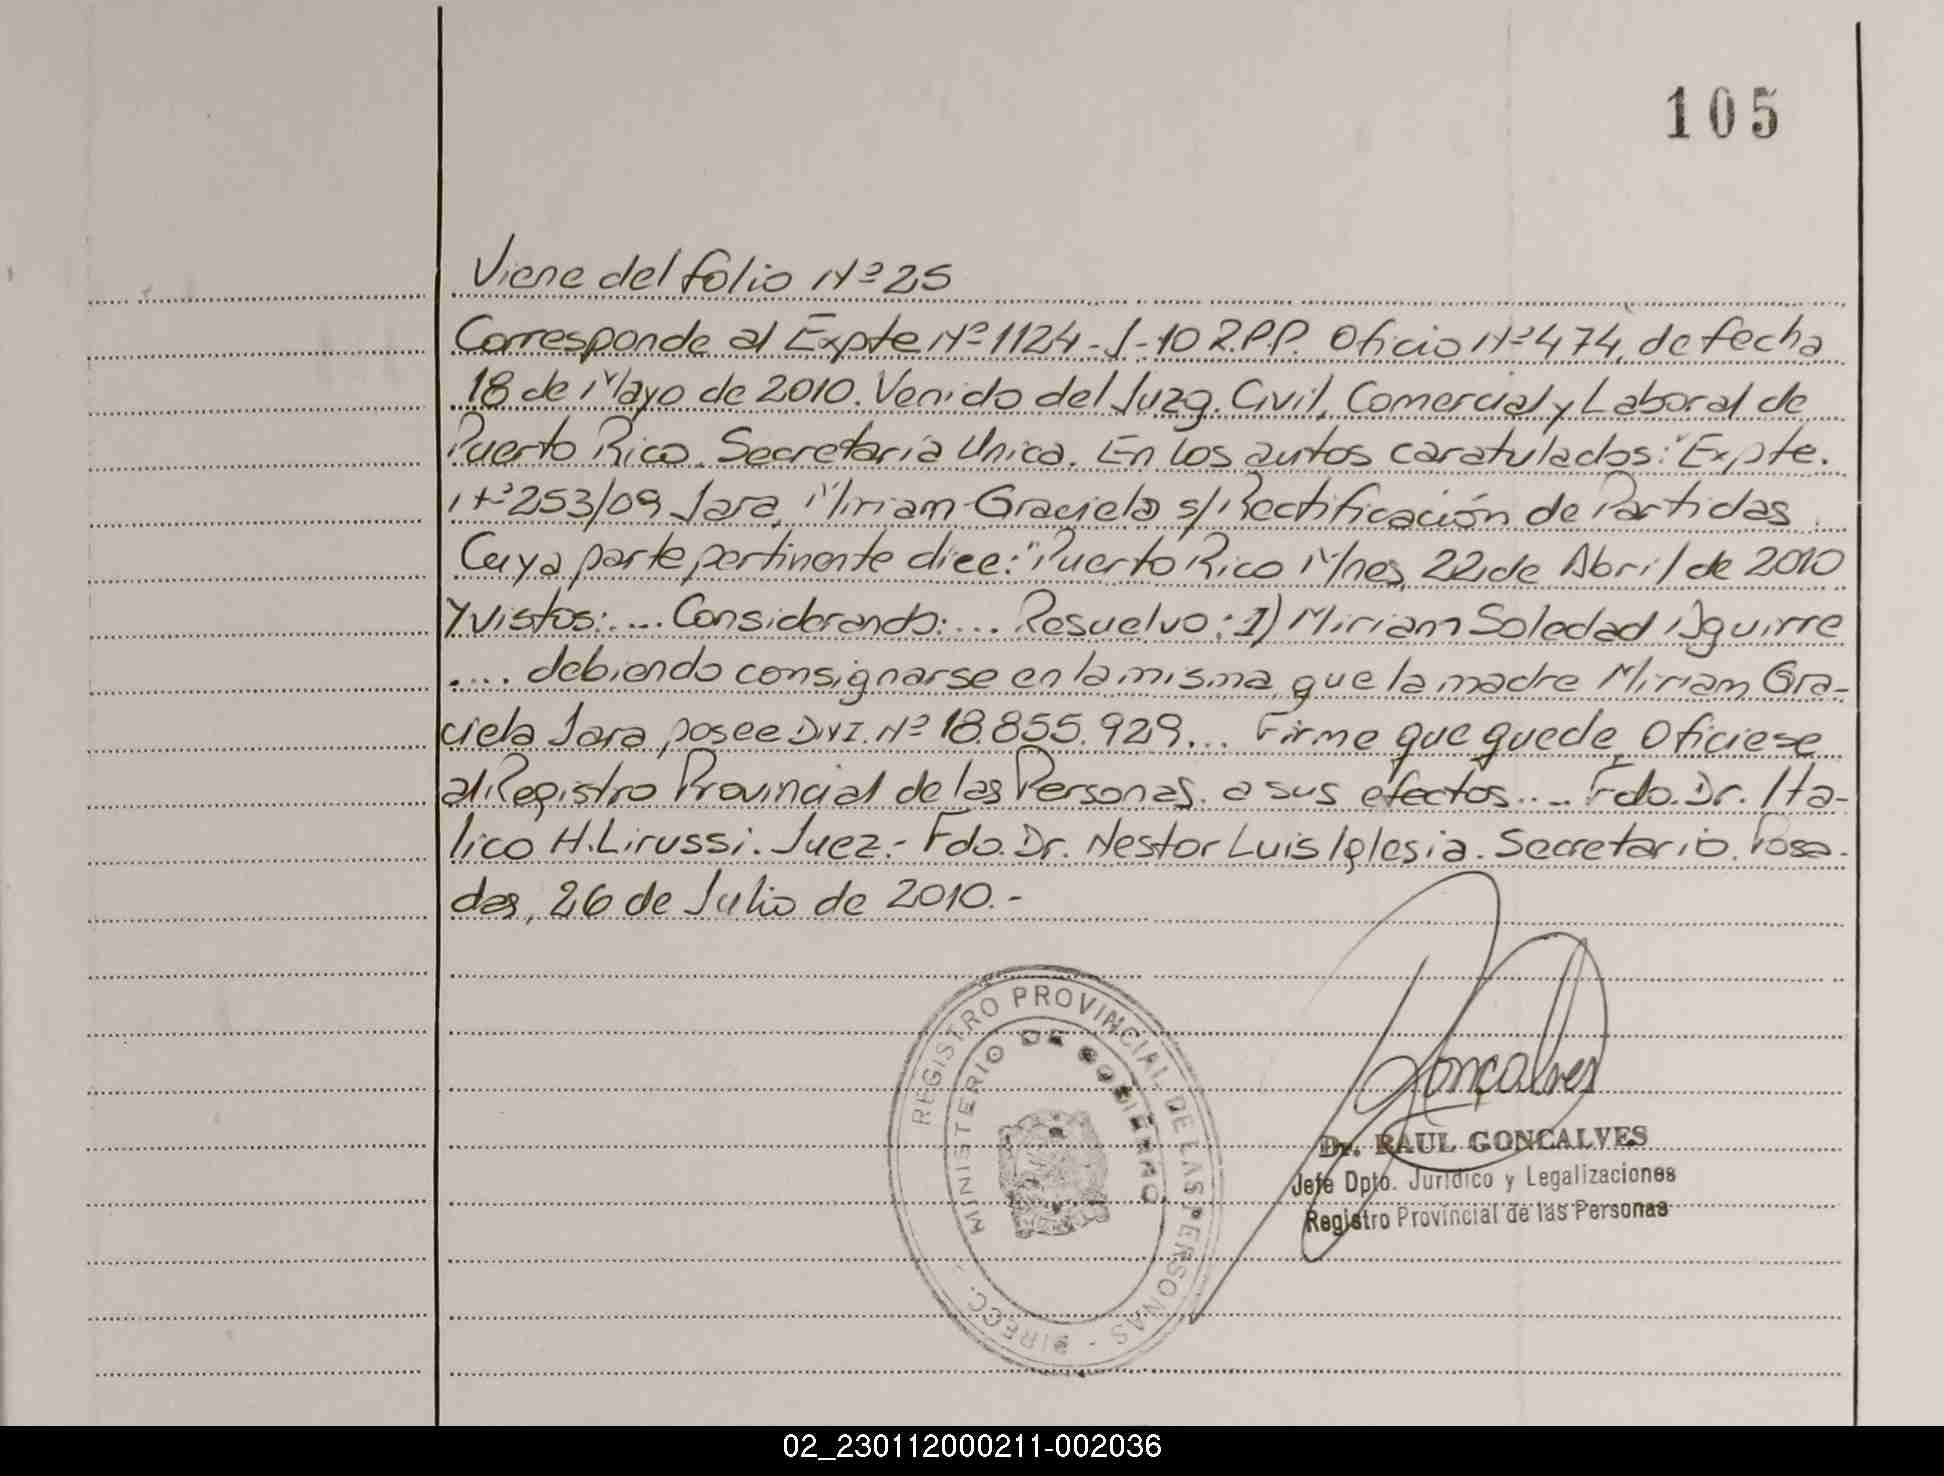 105
Viene del folio Nº 25
Corresponde al Expte Nº 1124-J-10 R.P.P. Oficio Nº 474, de fecha
18 de Mayo de 2010. Venido del Juzg. Civil, Comercial y Laboral de
Puerto Rico. Secretaría Unica. En los autos caratulados: "Expte.
Nº 253/09 Jara, Miriam Graciela s/Rectificación de Partidas
Cuya parte pertinente dice: "Puerto Rico Mnes, 22 de Abril de 2010
Y vistos: .... Considerando: ... Resuelvo: 1) Miriam Soledad Aguirre
.... debiendo consignarse en la misma, que la madre Miriam Gra-
ciela Jara, posee D.N.I. Nº 18.855.929... Firme que quede, Oficiese
al Registro Provincial de las Personas. a sus efectos.... Fdo. Dr. Ita-
lico H. Lirussi. Juez.- Fdo. Dr. Nestor Luis Iglesia. Secretario. Posa-
das, 26 de Julio de 2010.-
REGISTRO PROVINCIAL DE LAS PERSONAS - DIRECC. -
MINISTERIO DE GOBIERNO
Gonçalves
Dr. RAUL GONCALVES
Jefe Dpto. Jurídico y Legalizaciones
Registro Provincial de las Personas
02_230112000211-002036